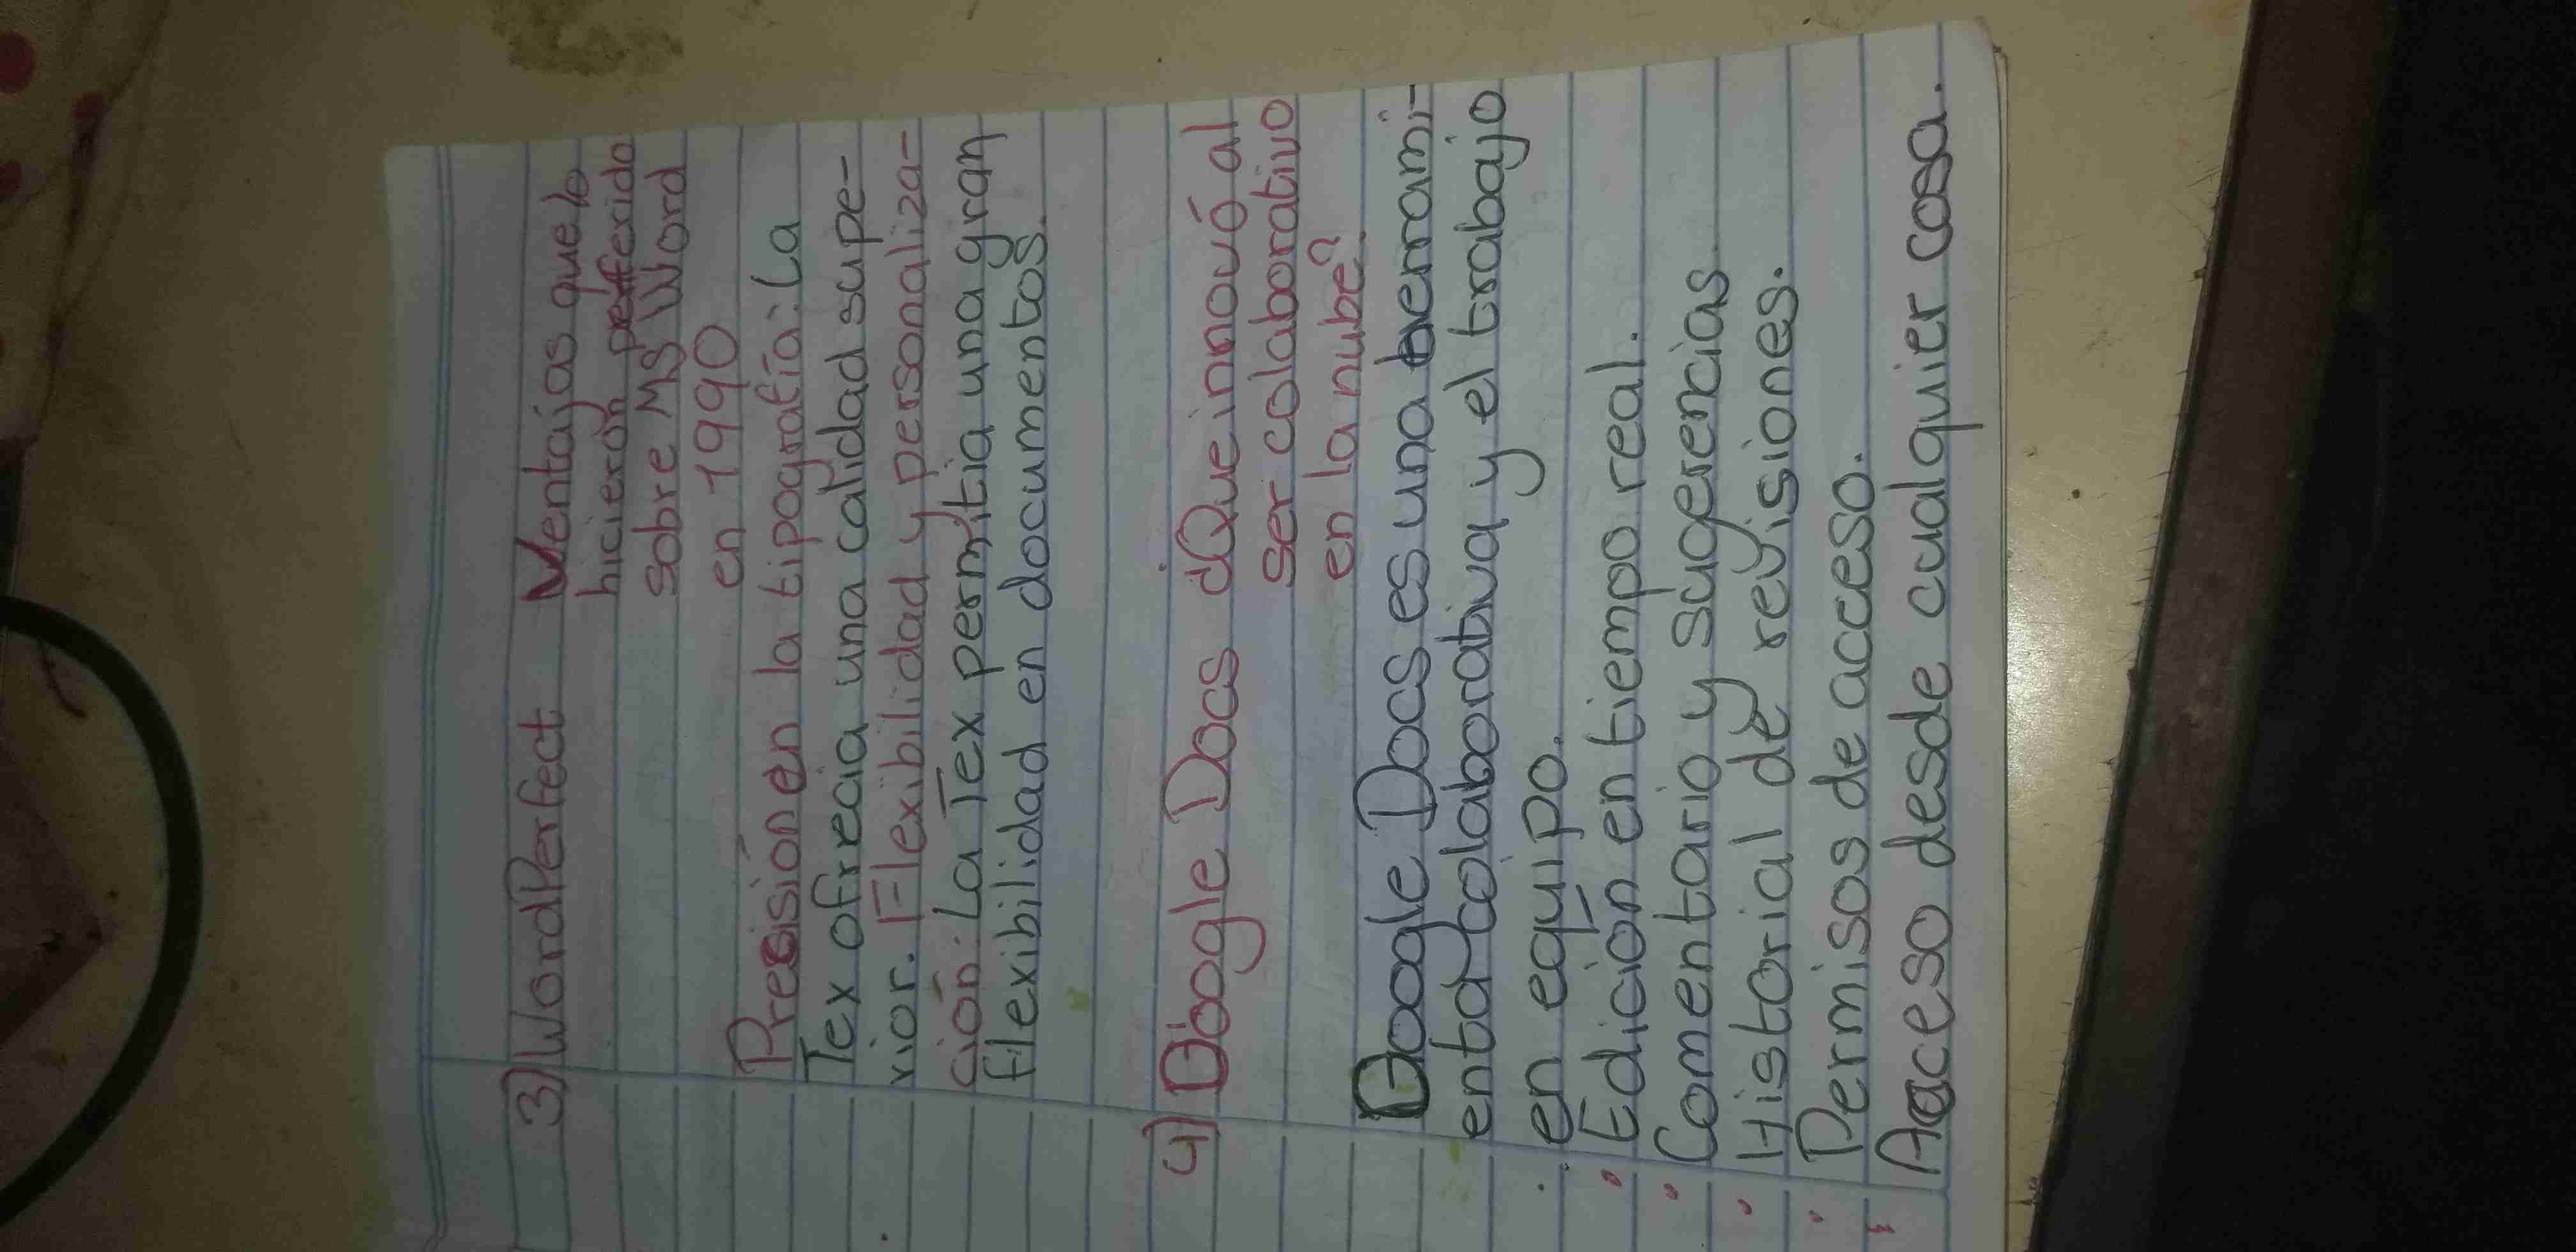 3) WordPerfect Ventajas que lo
hicierón pefferido
sobre MS Word
en 1990
Presiónen la tipografía: La
Tex ofrecia una calidad supe-
rior. Flexibilidad y personaliza-
ción: La Tex permitia una gran
flexibilidad en documentos.
4) Google Docs ¿Que innovó al
ser colaborativo
en la nube?
Google Docs es una herrami-
enta colaborativa y el trabajo
en equipo.
Edición en tiempo real.
Comentario y sugerencias
Historial de revisiones.
Permisos de acceso.
Acceso desde cualquier cosa.